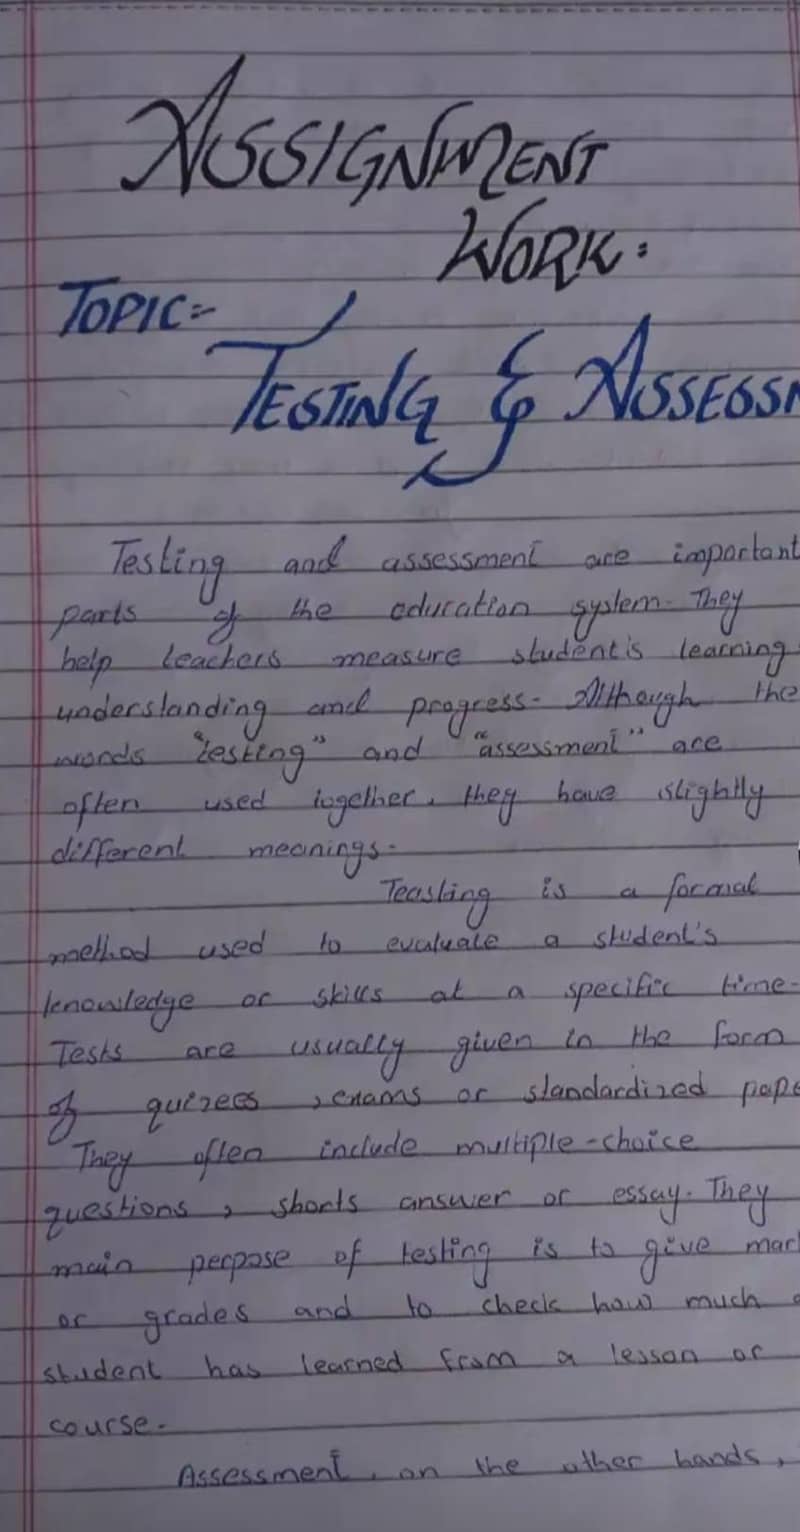 ASSIGNMENT
WORK:
TOPIC:-
TESTING & ASSESSM
Testing and assessment are important
parts of the education system. They
help teachers measure student's learning
understanding and progress. Although the
words "testing" and "assessment" are
often used together, they have slightly
different meanings.
Teasting is a formal
method used to evaluate a student's
knowledge or skills at a specific time.
Tests are usually given in the form
of quizees, exams or standardized pape
They often include multiple-choice
questions, shorts answer or essay. They
main perpose of testing is to give mar
or grades and to check how much a
student has learned from a lesson or
course.
Assessment, on the other hands,